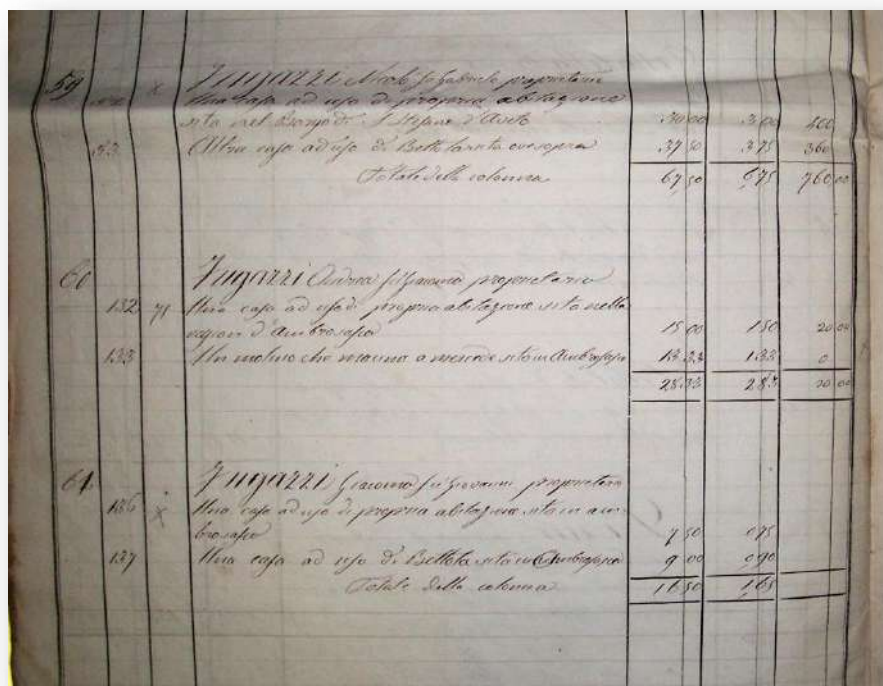 59 x Fugazzi Nicolò fu Gabriele proprietario
Una casa ad uso di propria abitazione
sita nel Borgo di S. Stefano d'Aveto 30 00 3 00 400
Altra casa ad uso di Bettola sita ove sopra 37 50 3 75 360
Totale della colonna 67 50 6 75 760 00
60 Fugazzi Andrea fu Giacomo proprietario
132 71 Una casa ad uso di propria abitazione sita nella
region d'Ambrosasco 15 00 1 50 20 00
133 Un molino che macina a mercede sita in Ambrosasco 13 33 1 33 0
28 33 2 83 20 00
61 Fugazzi Giacomo fu Giovanni proprietario
136 x Una casa ad uso di propria abitazione sita in Am
brosasco 7 50 0 75
137 Una casa ad uso di Bettola sita in Ambrosasco 9 00 0 90
Totale della colonna 16 50 1 65